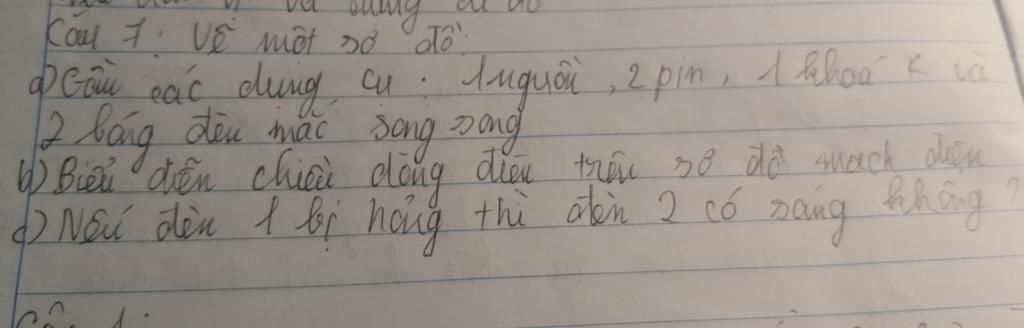 Câu 7: Vẽ một sơ đồ:
a) Gồm các dụng cụ: 1 nguồn, 2 pin, 1 khoá K và
2 bóng đèn mắc song song
b) Biểu diễn chiều dòng điện trên sơ đồ mạch điện
c) Nếu đèn 1 bị hỏng thì đèn 2 có sáng không?